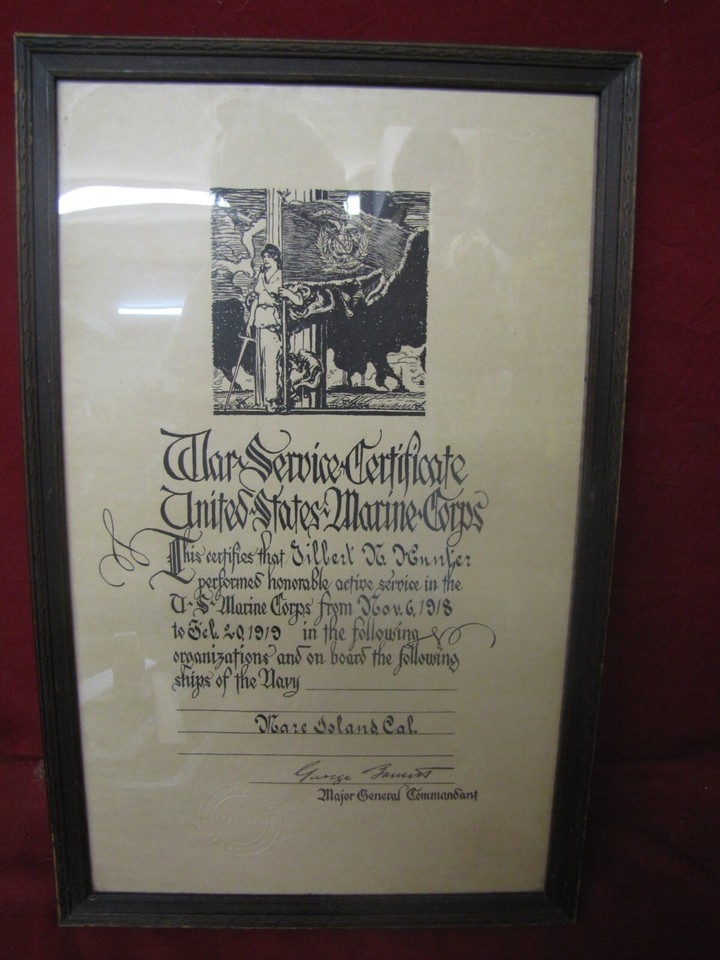 War Service Certificate
United States Marine Corps
This certifies that Gilbert N. Hunker
performed honorable active service in the
U·S·Marine Corps from Nov. 6, 1918
to Feb. 20, 1919 in the following
organizations and on board the following
ships of the Navy
Mare Island, Cal.
George Barnett
Major General Commandant